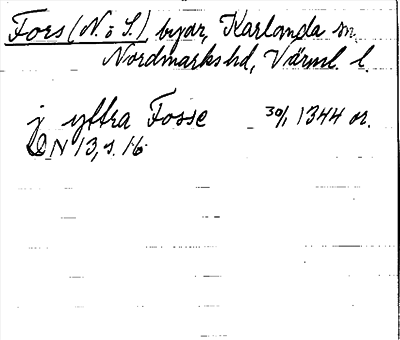 Fors (N. o S.) byar, Karlanda sn,
Nordmarks hd, Värml. l.
j yttra Fosse 30/1 1344 or.
DN 13, s. 16.